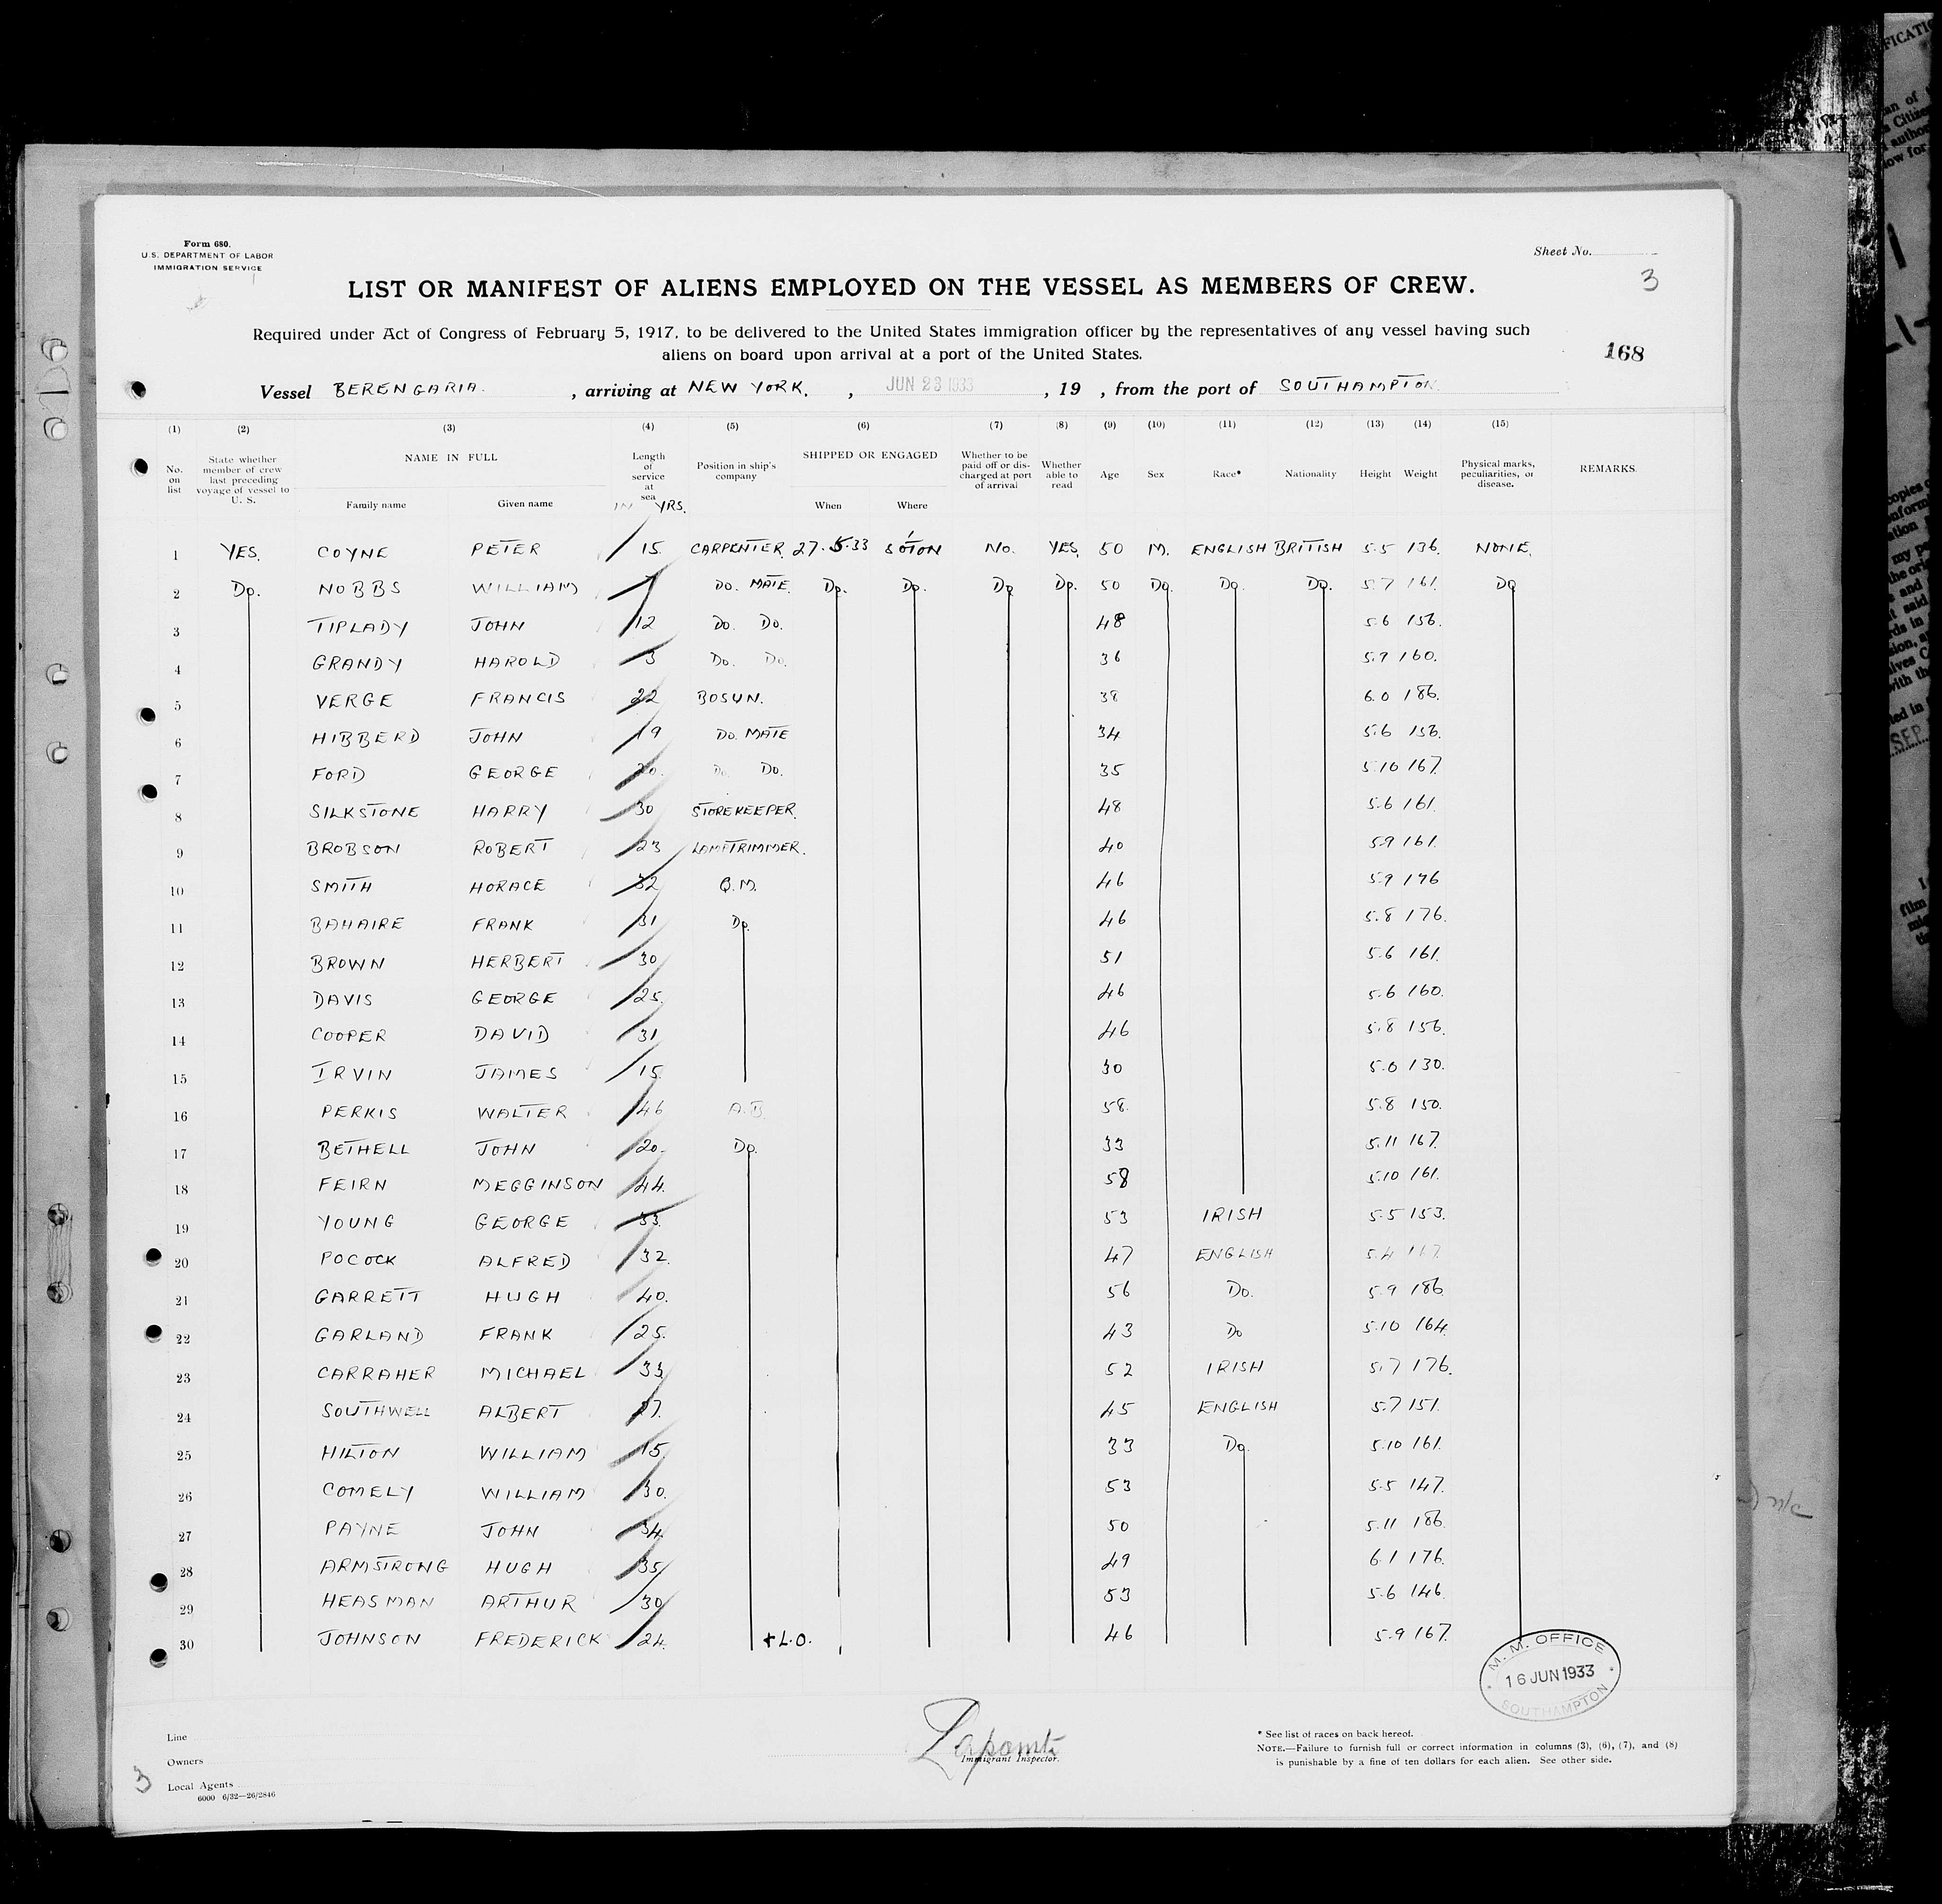 Form 680.
U.S. DEPARTMENT OF LABOR
IMMIGRATION SERVICE
Sheet No.
3
LIST OR MANIFEST OF ALIENS EMPLOYED ON THE VESSEL AS MEMBERS OF CREW.
Required under Act of Congress of February 5, 1917, to be delivered to the United States immigration officer by the representatives of any vessel having such
aliens on board upon arrival at a port of the United States.
168
Vessel BERENGARIA. , arriving at NEW YORK. , JUN 23 1933 , 19 , from the port of SOUTHAMPTON.
(1) (2) (3) (4) (5) (6) (7) (8) (9) (10) (11) (12) (13) (14) (15)
No. on list
State whether member of crew last preceding voyage of vessel to U. S.
NAME IN FULL
Family name Given name
Length of service at sea IN YRS.
Position in ship's company
SHIPPED OR ENGAGED
When Where
Whether to be paid off or discharged at port of arrival
Whether able to read
Age Sex Race* Nationality Height Weight
Physical marks, peculiarities, or disease.
REMARKS.
1 YES. COYNE PETER 15. CARPENTER 27.5.33 S'OTON No. YES. 50 M. ENGLISH BRITISH 5.5 136. NONE.
2 Do. NOBBS WILLIAM Do. MATE. Do. Do. Do Do. 50 Do. Do. Do. 5.7 161. Do
3 TIPLADY JOHN 12 Do. Do. 48 5.6 156.
4 GRANDY HAROLD 3 Do. Do. 36 5.9 160.
5 VERGE FRANCIS 22 BOSUN. 38 6.0 186.
6 HIBBERD JOHN 19 Do. MATE 34 5.6 156.
7 FORD GEORGE 20. Do. Do. 35 5.10 167.
8 SILKSTONE HARRY 30 STOREKEEPER. 48 5.6 161.
9 BROBSON ROBERT 23 LAMPTRIMMER. 40 5.9 161.
10 SMITH HORACE 32 Q.M. 46 5.9 176
11 BAHAIRE FRANK 31 Do. 46 5.8 176.
12 BROWN HERBERT 30 51 5.6 161.
13 DAVIS GEORGE 25. 46 5.6 160.
14 COOPER DAVID 31 46 5.8 156.
15 IRVIN JAMES 15. 30 5.0 130.
16 PERKIS WALTER 46 A.B. 58. 5.8 150.
17 BETHELL JOHN 20. Do. 33 5.11 167.
18 FEIRN MEGGINSON 44. 58 5.10 161.
19 YOUNG GEORGE 33. 53 IRISH 5.5 153.
20 POCOCK ALFRED 32. 47 ENGLISH 5.4
21 GARRETT HUGH 40. 56 Do. 5.9 186
22 GARLAND FRANK 25. 43 Do 5.10 164.
23 CARRAHER MICHAEL 33 52 IRISH 5.7 176.
24 SOUTHWELL ALBERT 27. 45 ENGLISH 5.7 151.
25 HILTON WILLIAM 15. 33 Do. 5.10 161.
26 COMELY WILLIAM 30. 53 5.5 147.
27 PAYNE JOHN 34. 50 5.11 186.
28 ARMSTRONG HUGH 35. 49 6.1 176.
29 HEASMAN ARTHUR 30 53 5.6 146.
30 JOHNSON FREDERICK 24. + L.O. 46 5.9 167.
M. M. OFFICE
16 JUN 1933
SOUTHAMPTON
Line
Owners
Local Agents
6000 6/32—26/2846
3
Immigrant Inspector.
* See list of races on back hereof.
NOTE.—Failure to furnish full or correct information in columns (3), (6), (7), and (8)
is punishable by a fine of ten dollars for each alien. See other side.